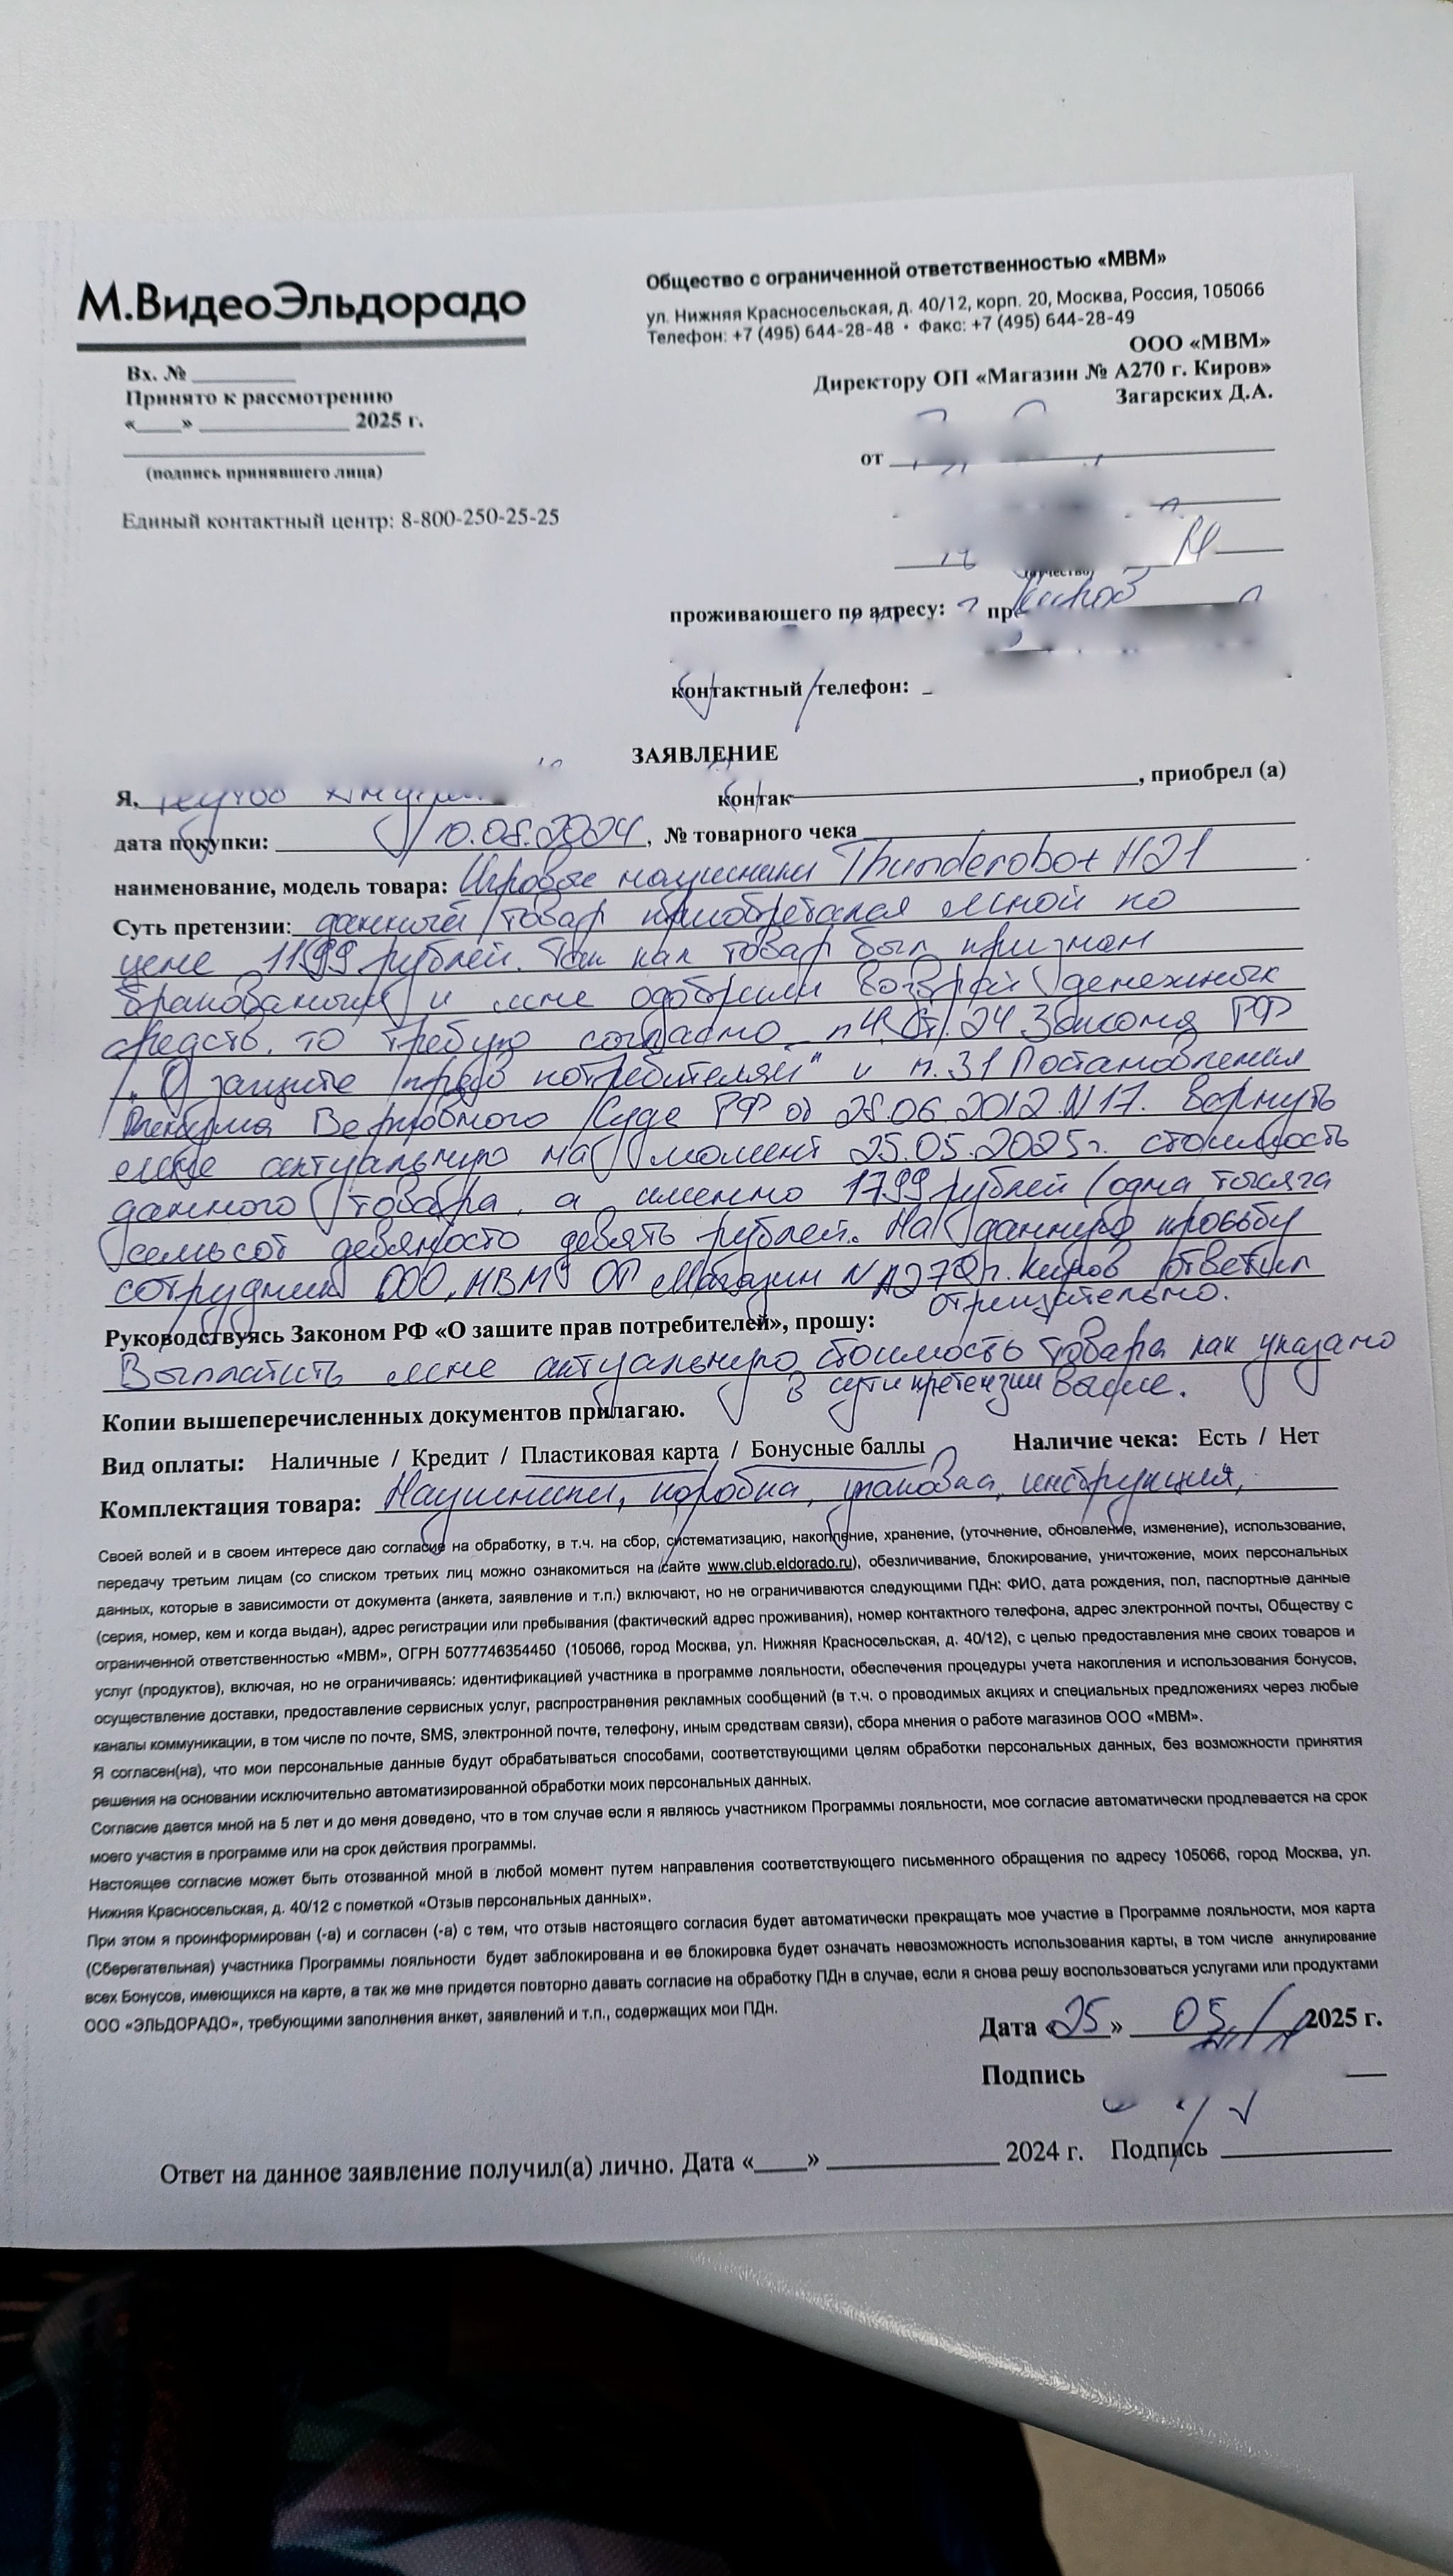 М.ВидеоЭльдорадо
Общество с ограниченной ответственностью «МВМ»
ул. Нижняя Красносельская, д. 40/12, корп. 20, Москва, Россия, 105066
Телефон: +7 (495) 644-28-48 • Факс: +7 (495) 644-28-49
ООО «МВМ»
Директору ОП «Магазин № А270 г. Киров»
Загарских Д.А.
Вх. № ________
Принято к рассмотрению
«____» ____________ 2025 г.
(подпись принявшего лица)
Единый контактный центр: 8-800-250-25-25
от
проживающего по адресу: г Киров
контактный телефон:
ЗАЯВЛЕНИЕ
Я, , приобрел (а)
дата покупки: 10.08.2024, № товарного чека
наименование, модель товара: Игровые наушники Thunderobot H21
Суть претензии: данный товар приобретался мной по
цене 1199 рублей. Так как товар был признан
бракованным и мне одобрили возврат денежных
средств, то требую согласно п4, Ст. 24 Закона РФ
"О защите прав потребителей" и п.31 Постановления
Пленума Верховного Суда РФ от 28.06.2012 N17. вернуть
мне актуальную на момент 25.05.2025г. стоимость
данного товара, а именно 1799 рублей (одна тысяча
семьсот девяносто девять рублей. На данную просьбу
сотрудник ООО "МВМ" ОП Магазин N А270 г. Киров ответил
отрицательно.
Руководствуясь Законом РФ «О защите прав потребителей», прошу:
Выплатить мне актуальную стоимость товара как указано
в сути претензии выше.
Копии вышеперечисленных документов прилагаю.
Вид оплаты: Наличные / Кредит / Пластиковая карта / Бонусные баллы Наличие чека: Есть / Нет
Комплектация товара: Наушники, коробка, упаковка, инструкция,
Своей волей и в своем интересе даю согласие на обработку, в т.ч. на сбор, систематизацию, накопление, хранение, (уточнение, обновление, изменение), использование,
передачу третьим лицам (со списком третьих лиц можно ознакомиться на сайте www.club.eldorado.ru), обезличивание, блокирование, уничтожение, моих персональных
данных, которые в зависимости от документа (анкета, заявление и т.п.) включают, но не ограничиваются следующими ПДн: ФИО, дата рождения, пол, паспортные данные
(серия, номер, кем и когда выдан), адрес регистрации или пребывания (фактический адрес проживания), номер контактного телефона, адрес электронной почты, Обществу с
ограниченной ответственностью «МВМ», ОГРН 5077746354450 (105066, город Москва, ул. Нижняя Красносельская, д. 40/12), с целью предоставления мне своих товаров и
услуг (продуктов), включая, но не ограничиваясь: идентификацией участника в программе лояльности, обеспечения процедуры учета накопления и использования бонусов,
осуществление доставки, предоставление сервисных услуг, распространения рекламных сообщений (в т.ч. о проводимых акциях и специальных предложениях через любые
каналы коммуникации, в том числе по почте, SMS, электронной почте, телефону, иным средствам связи), сбора мнения о работе магазинов ООО «МВМ».
Я согласен(на), что мои персональные данные будут обрабатываться способами, соответствующими целям обработки персональных данных, без возможности принятия
решения на основании исключительно автоматизированной обработки моих персональных данных.
Согласие дается мной на 5 лет и до меня доведено, что в том случае если я являюсь участником Программы лояльности, мое согласие автоматически продлевается на срок
моего участия в программе или на срок действия программы.
Настоящее согласие может быть отозванной мной в любой момент путем направления соответствующего письменного обращения по адресу 105066, город Москва, ул.
Нижняя Красносельская, д. 40/12 с пометкой «Отзыв персональных данных».
При этом я проинформирован (-а) и согласен (-а) с тем, что отзыв настоящего согласия будет автоматически прекращать мое участие в Программе лояльности, моя карта
(Сберегательная) участника Программы лояльности будет заблокирована и ее блокировка будет означать невозможность использования карты, в том числе аннулирование
всех Бонусов, имеющихся на карте, а так же мне придется повторно давать согласие на обработку ПДн в случае, если я снова решу воспользоваться услугами или продуктами
ООО «ЭЛЬДОРАДО», требующими заполнения анкет, заявлений и т.п., содержащих мои ПДн.
Дата «25» 05 2025 г.
Подпись
Ответ на данное заявление получил(а) лично. Дата «____» ____________ 2024 г. Подпись ____________